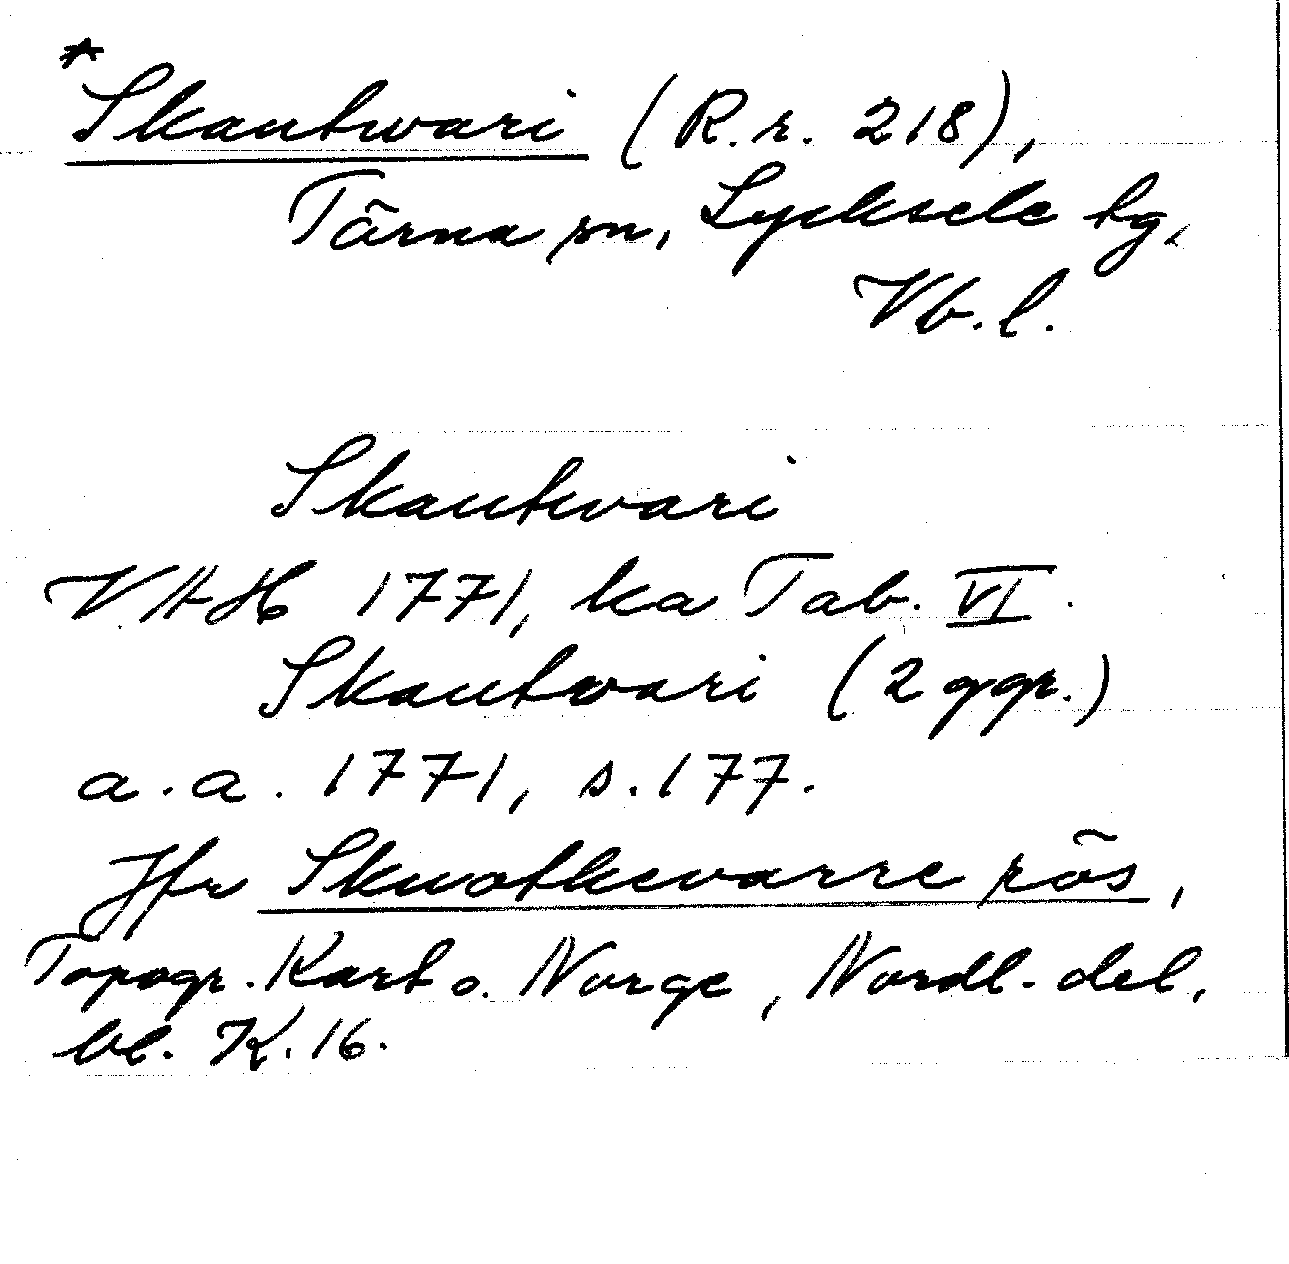 *Skautwari (R.r. 218),
Tärna sn, Lycksele tg,
Vb.l.
Skautwari
VAH 1771, ka Tab. VI.
Skautwari (2 ggr.)
a.a. 1771, s. 177.
Jfr Skuotkevarre rös,
Topogr. Kart o. Norge, Nordl. del,
bl. K. 16.